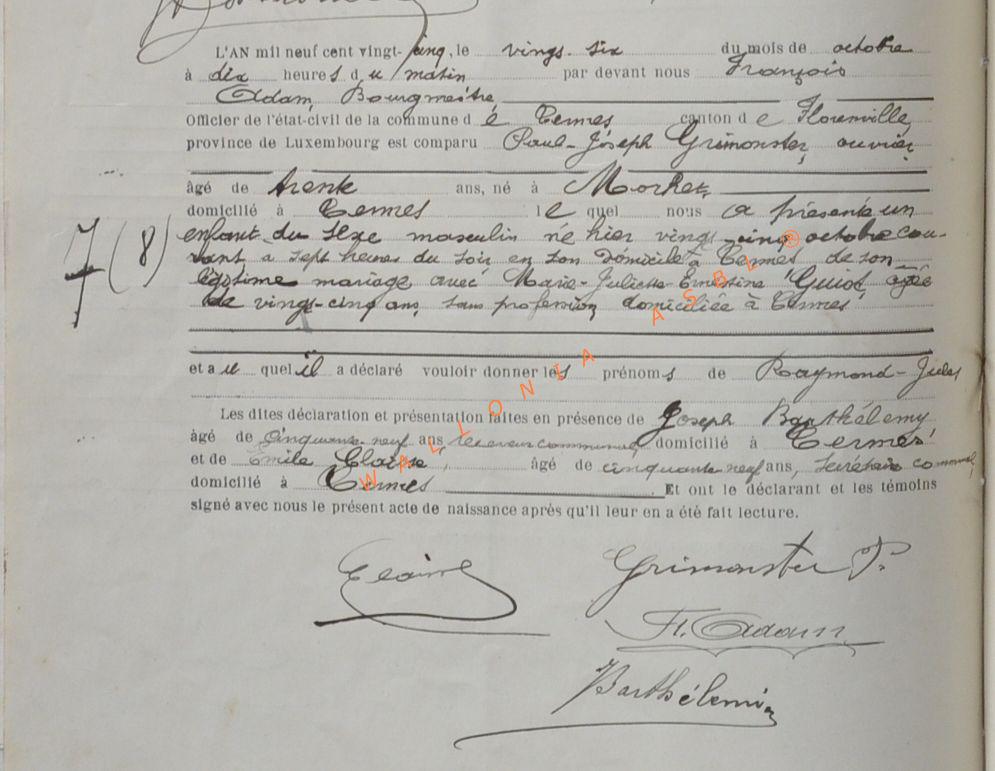 L'AN mil neuf cent vingt-cinq, le vingt six du mois de octobre
à dix heures du matin par devant nous François
Adam, Bourgmestre
Officier de l'état-civil de la commune d e Termes canton d e Florenville,
province de Luxembourg est comparu Paul-Joseph Grimonster, ouvrier,
âgé de trente ans, né à Morhet,
domicilié à Termes le quel nous a présenté un
7 (8) enfant du sexe masculin né hier vingt-cinq octobre cou-
rant à sept heures du soir en son domicile à Termes de son
légitime mariage avec Marie-Juliette-Ernestine Guiot âgée
de vingt-cinq ans, sans profession, domiciliée à Termes
et au quel il a déclaré vouloir donner les prénoms de Raymond-Jules
Les dites déclaration et présentation faites en présence de Joseph Barthélemy
âgé de cinquante-neuf ans receveur communal, domicilié à Termes
et de Emile Claisse, âgé de cinquante-neuf ans, secrétaire communal,
domicilié à Termes Et ont le déclarant et les témoins
signé avec nous le présent acte de naissance après qu'il leur en a été fait lecture.
WALLONIA ASBL ®
Grimonster P.
Fr. Adam
Barthélemy